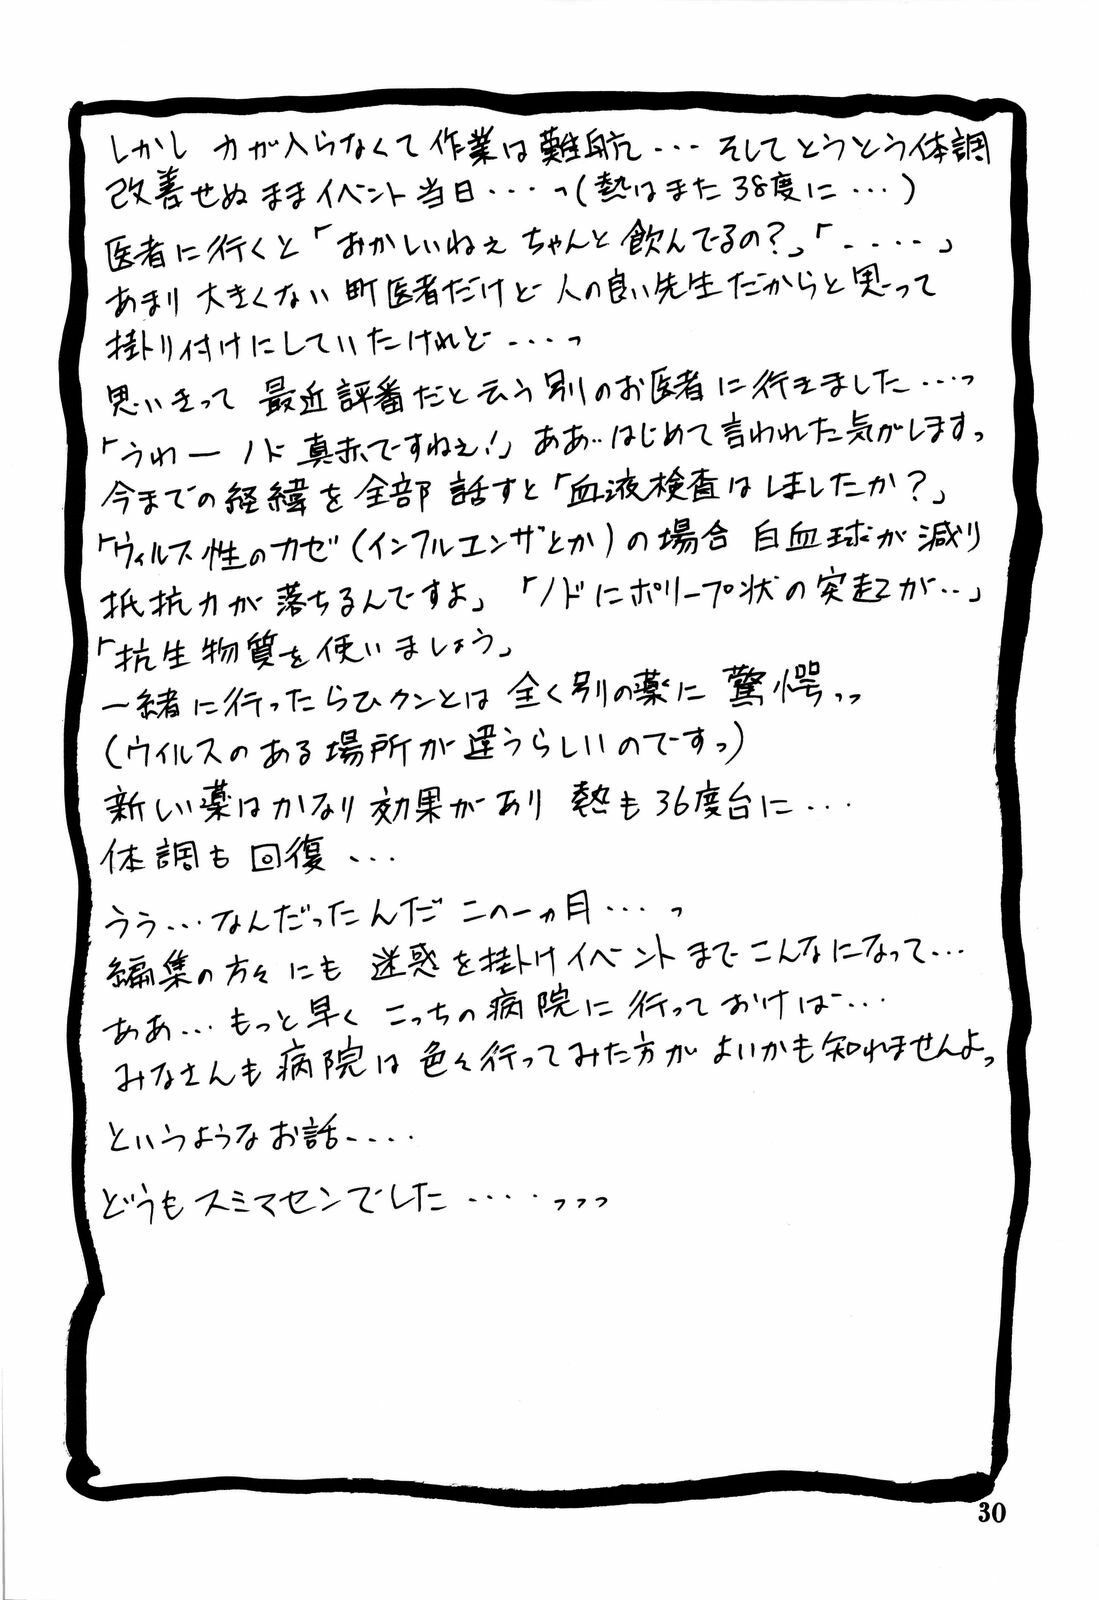 しかし 力が入らなくて作業は難航・・・ そしてとうとう体調
改善せぬままイベント当日・・・っ(熱はまた38度に・・・)
医者に行くと「おかしいねぇ ちゃんと飲んでるの?」「・・・・」
あまり大きくない町医者だけど 人の良い先生だからと思って
掛かり付けにしていたけれど・・・っ
思いきって 最近評番だと云う別のお医者に行きました・・・っ
「うわー ノド真赤ですねぇ!」ああ・・はじめて言われた気がしますっ
今までの経緯を全部話すと「血液検査はしましたか?」
「ウィルス性のカゼ(インフルエンザとか)の場合 白血球が減り
抵抗力が落ちるんですよ」「ノドにポリープ状の突起が・・」
「抗生物質を使いましょう」
一緒に行ったらひクンとは全く別の薬に驚愕っっ
(ウイルスのある場所が違うらしいのですっ)
新しい薬はかなり効果があり 熱も36度台に・・・
体調も回復・・・
うう・・・なんだったんだ この一ヵ月・・・っ
編集の方々にも迷惑を掛けイベントまでこんなになって・・・
ああ・・・もっと早くこっちの病院に行っておけば・・・
みなさんも病院は色々行ってみた方がよいかも知れませんよっ
というようなお話・・・・
どうもスミマセンでした・・・・っっっ
30